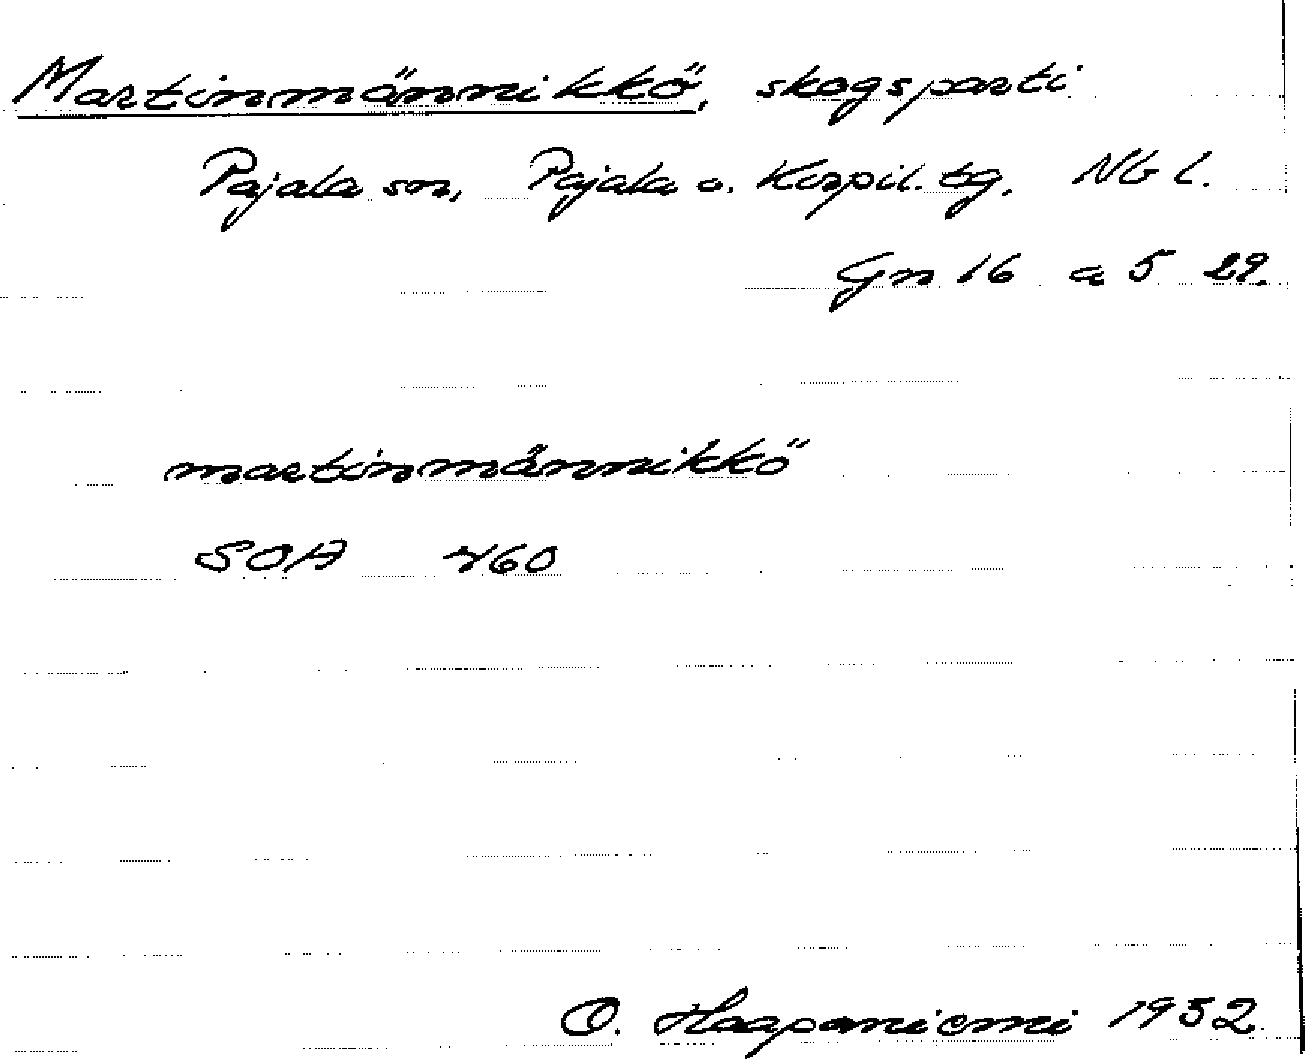 Martinmännikkö, skogsparti
Pajala sn, Pajala o. Korpil. tg. Nb l.
Gn 16 a 5 29.
martinmännikkö
SOA 460
O. Haapaniemi 1932.